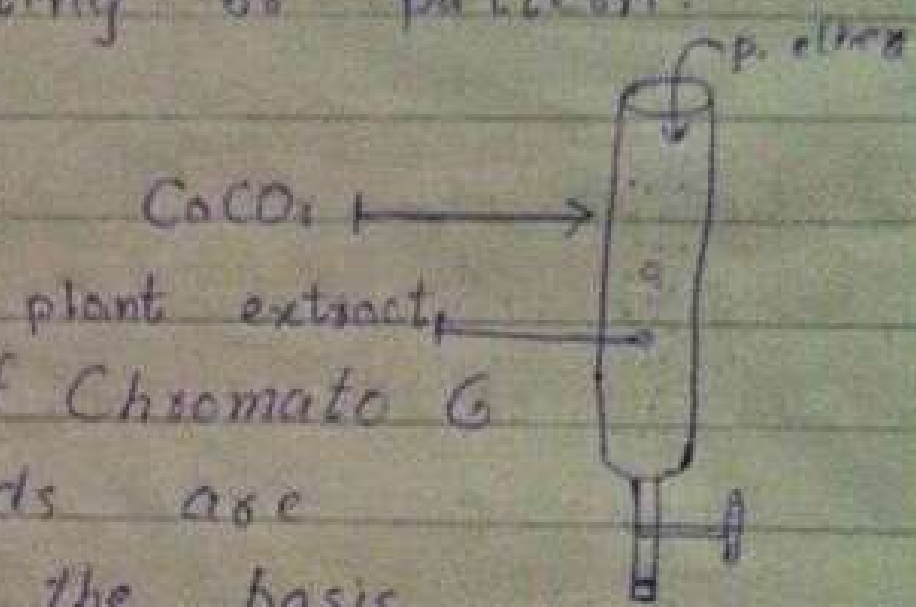 p. ether
CaCO₃
plant extract
Chromato G
ds are
the basis